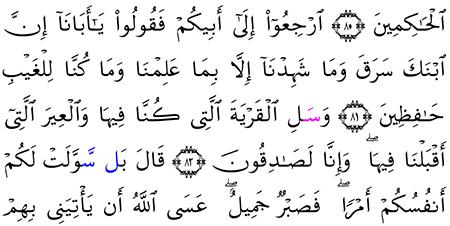 ٱلْحَـٰكِمِينَ ٨٠ ٱرْجِعُوٓا۟ إِلَىٰٓ أَبِيكُمْ فَقُولُوا۟ يَـٰٓأَبَانَآ إِنَّ
ٱبْنَكَ سَرَقَ وَمَا شَهِدْنَآ إِلَّا بِمَا عَلِمْنَا وَمَا كُنَّا لِلْغَيْبِ
حَـٰفِظِينَ ٨١ وَسَلِ ٱلْقَرْيَةَ ٱلَّتِى كُنَّا فِيهَا وَٱلْعِيرَ ٱلَّتِىٓ
أَقْبَلْنَا فِيهَا ۖ وَإِنَّا لَصَـٰدِقُونَ ٨٢ قَالَ بَل سَّوَّلَتْ لَكُمْ
أَنفُسُكُمْ أَمْرًا ۖ فَصَبْرٌ جَمِيلٌ ۖ عَسَى ٱللَّهُ أَن يَأْتِيَنِى بِهِمْ